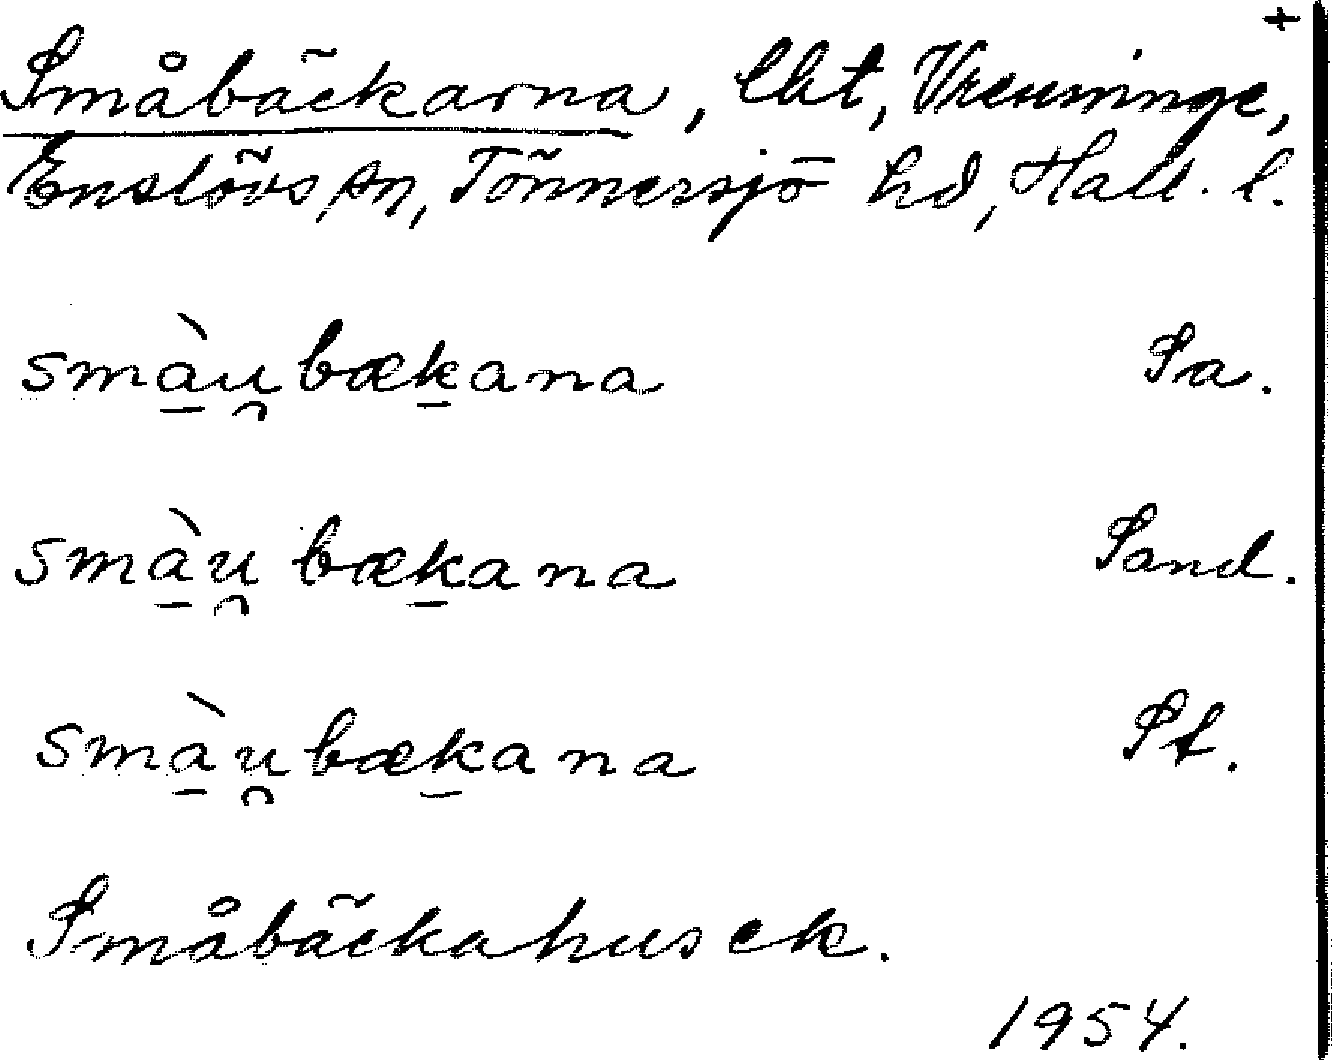 +
Småbäckarna, lht, Vrenninge,
Enslövs sn, Tönnersjö hd, Hall. l.
smàu̯bæk̠ana Sa.
smàu̯bæk̠ana Sand.
smàu̯bæk̠ana St.
Småbäckahus ek.
1954.